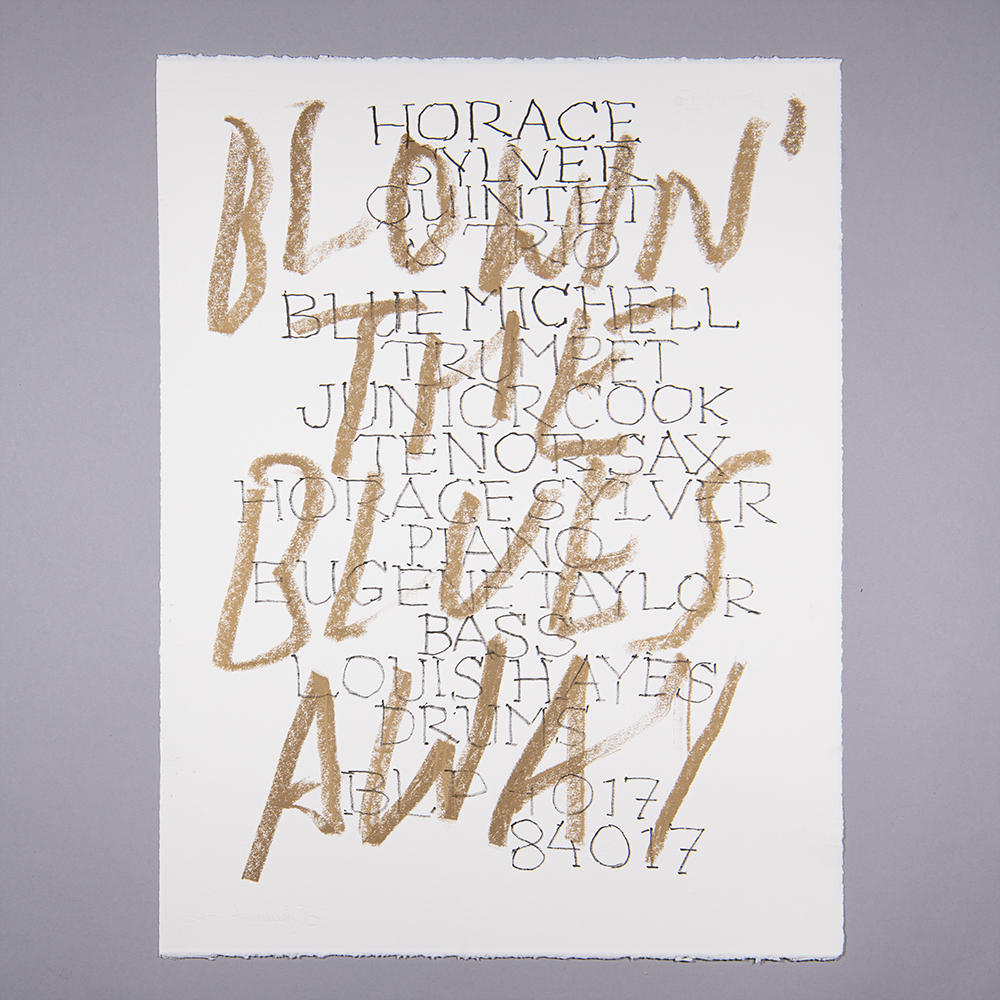 BLOWIN'
THE
BLUES
AWAY
HORACE
SYLVER
QUINTET
& TRIO
BLUE MICHELL
TRUMPET
JUNIOR COOK
TENOR SAX
HORACE SYLVER
PIANO
EUGENE TAYLOR
BASS
LOUIS HAYES
DRUMS
BLP 4017
84017